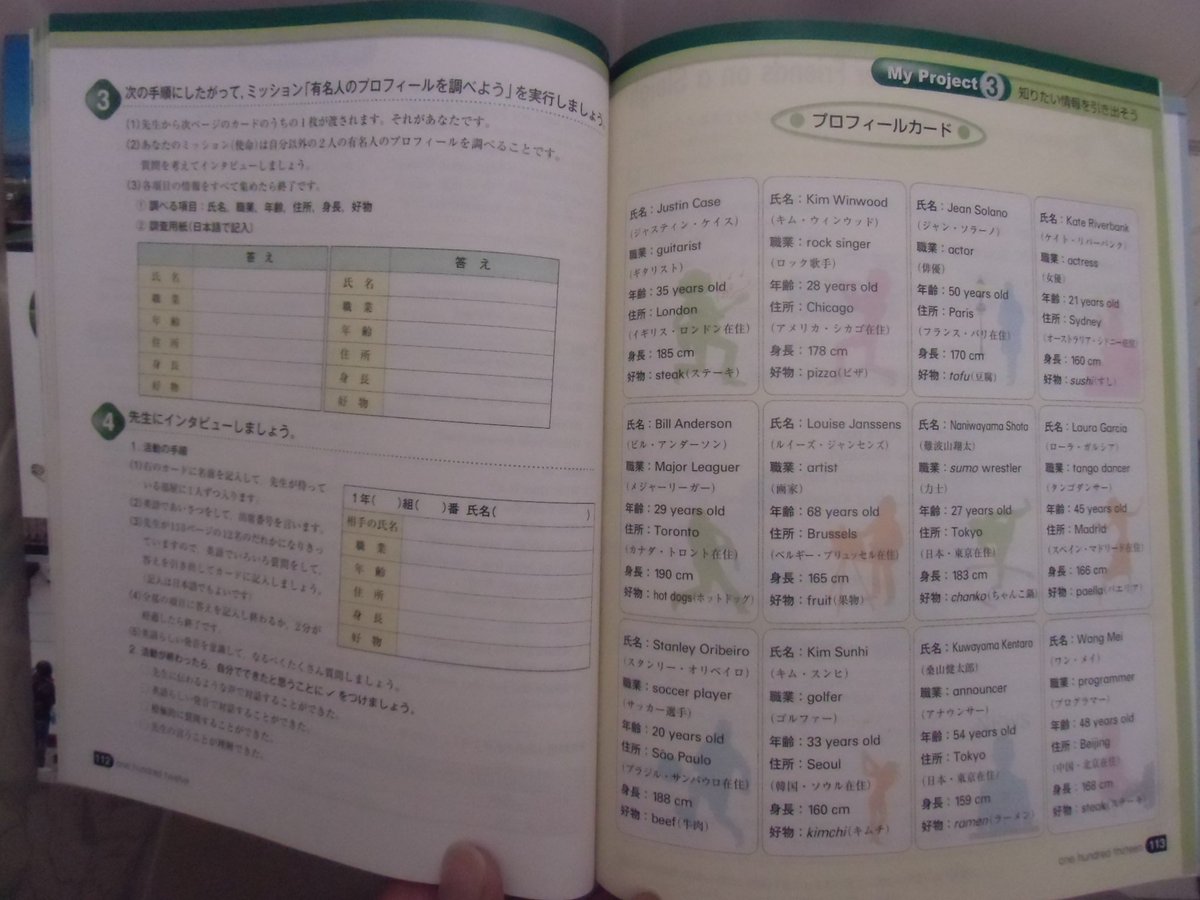 3 次の手順にしたがって，ミッション「有名人のプロフィールを調べよう」を実行しましょう。
(1)先生から次ページのカードのうちの1枚が渡されます。それがあなたです。
(2)あなたのミッション(使命)は自分以外の2人の有名人のプロフィールを調べることです。
質問を考えてインタビューしましょう。
(3)各項目の情報をすべて集めたら終了です。
① 調べる項目：氏名，職業，年齢，住所，身長，好物
② 調査用紙(日本語で記入)
答え 答え
氏名 氏名
職業 職業
年齢 年齢
住所 住所
身長 身長
好物 好物
4 先生にインタビューしましょう。
1. 活動の手順
(1)右のカードに名前を記入して，先生が待って
いる部屋に1人ずつ入ります。
(2)英語であいさつをして，出席番号を言います。
(3)先生が113ページの12名のだれかになりきっ
ていますので，英語でいろいろ質問をして，
答えを引き出してカードに記入しましょう。
(記入は日本語でもよいです)
(4)全部の項目に答えを記入し終わるか，2分が
経過したら終了です。
(5)英語らしい発音を意識して，なるべくたくさん質問しましょう。
2. 活動が終わったら，自分でできたと思うことに✓をつけましょう。
先生に伝わるような声で対話することができた。
英語らしい発音で対話することができた。
積極的に質問することができた。
先生の言うことが理解できた。
1年( )組( )番 氏名( )
相手の氏名
職業
年齢
住所
身長
好物
112 one hundred twelve
My Project 3 知りたい情報を引き出そう
プロフィールカード
氏名：Justin Case
(ジャスティン・ケイス)
職業：guitarist
(ギタリスト)
年齢：35 years old
住所：London
(イギリス・ロンドン在住)
身長：185 cm
好物：steak(ステーキ)
氏名：Kim Winwood
(キム・ウィンウッド)
職業：rock singer
(ロック歌手)
年齢：28 years old
住所：Chicago
(アメリカ・シカゴ在住)
身長：178 cm
好物：pizza(ピザ)
氏名：Jean Solano
(ジャン・ソラーノ)
職業：actor
(俳優)
年齢：50 years old
住所：Paris
(フランス・パリ在住)
身長：170 cm
好物：tofu(豆腐)
氏名：Kate Riverbank
(ケイト・リバーバンク)
職業：actress
(女優)
年齢：21 years old
住所：Sydney
(オーストラリア・シドニー在住)
身長：160 cm
好物：sushi(すし)
氏名：Bill Anderson
(ビル・アンダーソン)
職業：Major Leaguer
(メジャーリーガー)
年齢：29 years old
住所：Toronto
(カナダ・トロント在住)
身長：190 cm
好物：hot dogs(ホットドッグ)
氏名：Louise Janssens
(ルイーズ・ジャンセンズ)
職業：artist
(画家)
年齢：68 years old
住所：Brussels
(ベルギー・ブリュッセル在住)
身長：165 cm
好物：fruit(果物)
氏名：Naniwayama Shota
(難波山翔太)
職業：sumo wrestler
(力士)
年齢：27 years old
住所：Tokyo
(日本・東京在住)
身長：183 cm
好物：chanko(ちゃんこ鍋)
氏名：Laura Garcia
(ローラ・ガルシア)
職業：tango dancer
(タンゴダンサー)
年齢：45 years old
住所：Madrid
(スペイン・マドリード在住)
身長：166 cm
好物：paella(パエリア)
氏名：Stanley Oribeiro
(スタンリー・オリベイロ)
職業：soccer player
(サッカー選手)
年齢：20 years old
住所：São Paulo
(ブラジル・サンパウロ在住)
身長：188 cm
好物：beef(牛肉)
氏名：Kim Sunhi
(キム・スンヒ)
職業：golfer
(ゴルファー)
年齢：33 years old
住所：Seoul
(韓国・ソウル在住)
身長：160 cm
好物：kimchi(キムチ)
氏名：Kuwayama Kentaro
(桑山健太郎)
職業：announcer
(アナウンサー)
年齢：54 years old
住所：Tokyo
(日本・東京在住)
身長：159 cm
好物：ramen(ラーメン)
氏名：Wang Mei
(ワン・メイ)
職業：programmer
(プログラマー)
年齢：48 years old
住所：Beijing
(中国・北京在住)
身長：168 cm
好物：steak(ステーキ)
one hundred thirteen 113